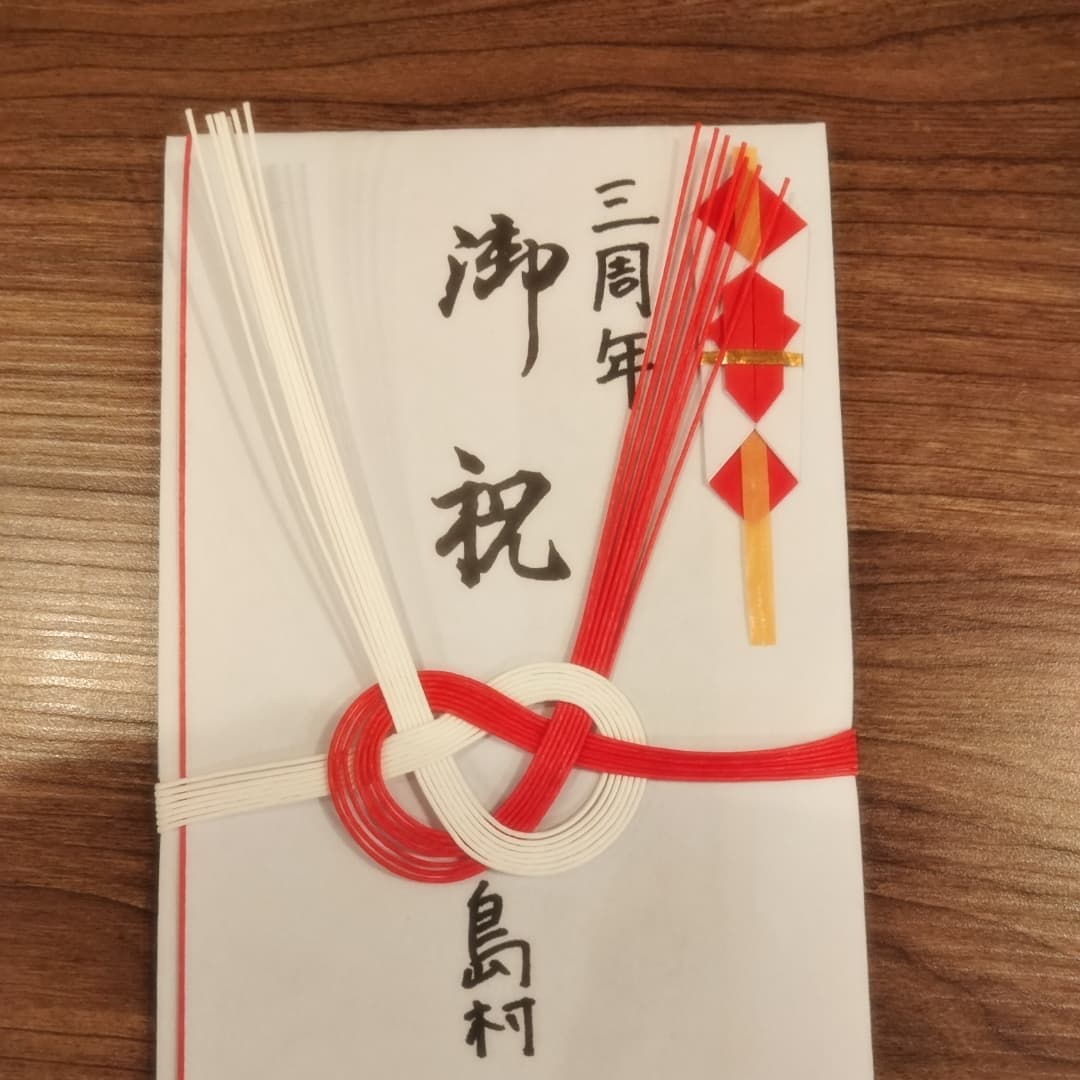 三周年
御祝
島村